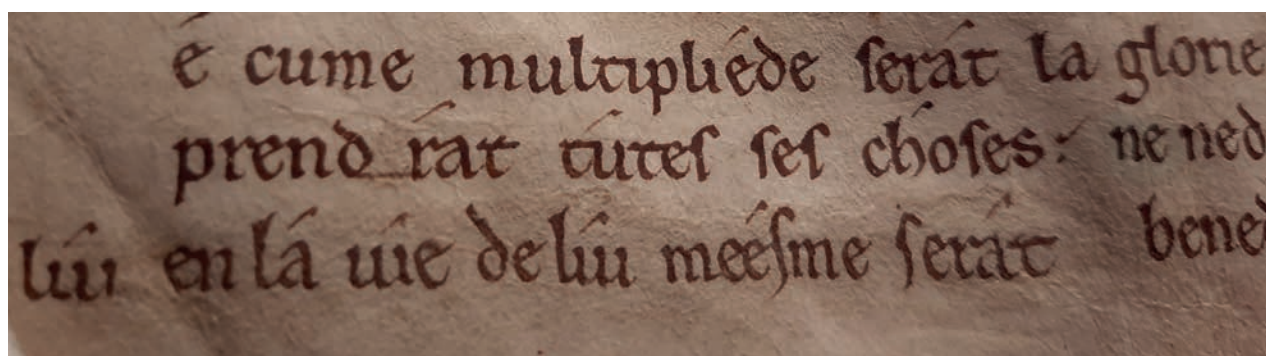 é cume multipliéde serát la glorie
prendrát tútes ses choses: ne ned
lúi en lá uie de lúi meésme serát bened